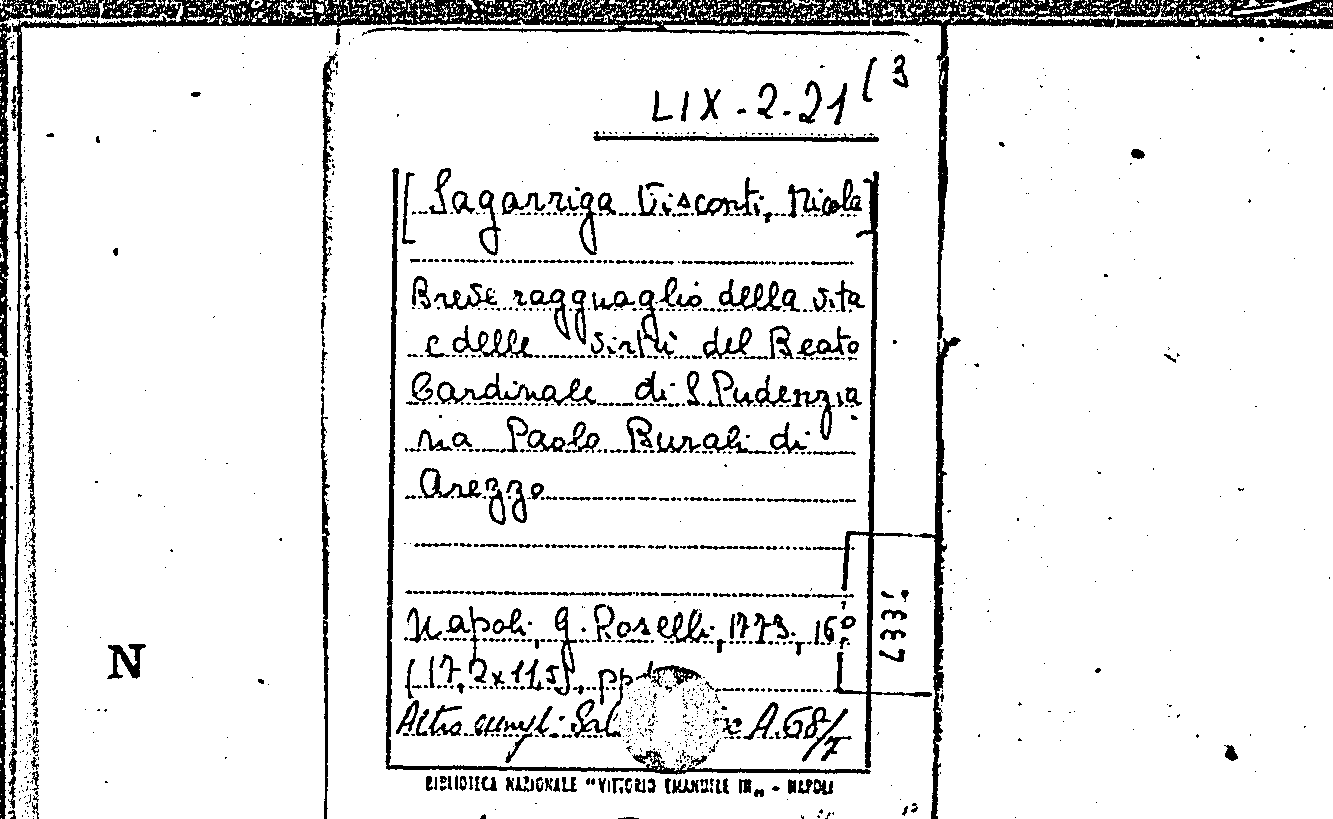 LIX-2-21(3
[Sagarriga Visconti, Nicola]
Breve ragguaglio della vita
e delle virtù del Beato
Cardinale di S. Pudenzia
na Paolo Burali di
Arezzo
Napoli, G. Roselli, 1773, 16°
(17,2x11,5), pp.
Altro A.68/7
N
BIBLIOTECA NAZIONALE "VITTORIO EMANUELE III„ - NAPOLI